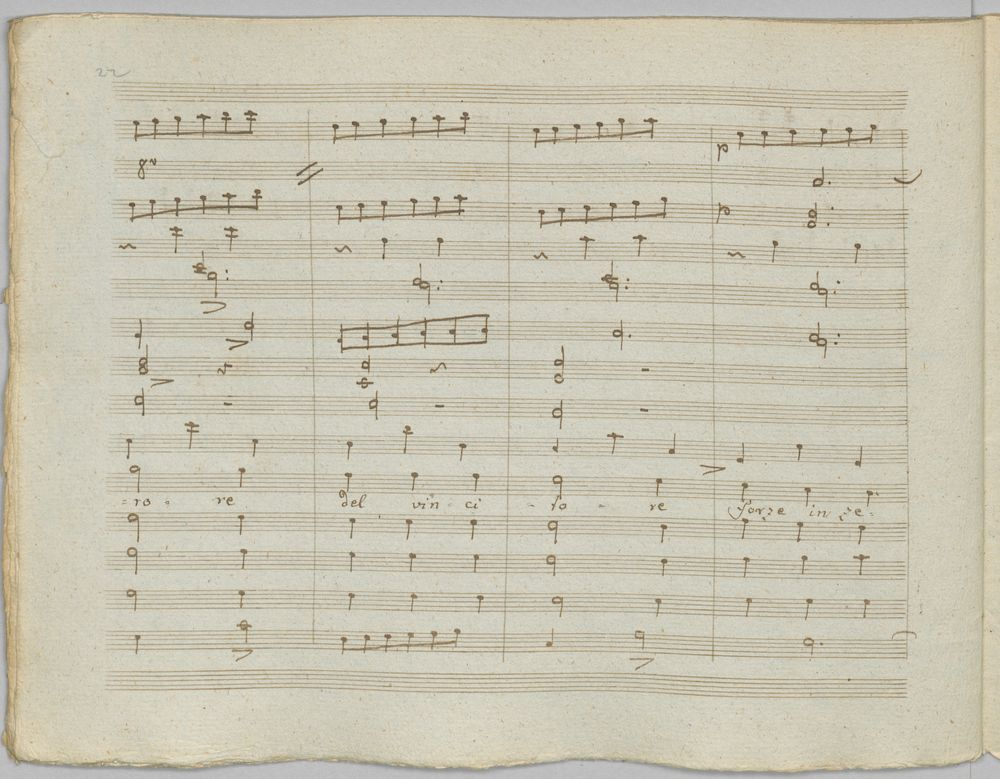 22
8va
p
p
=ro - re del vin - ci - to - re forze in ze=